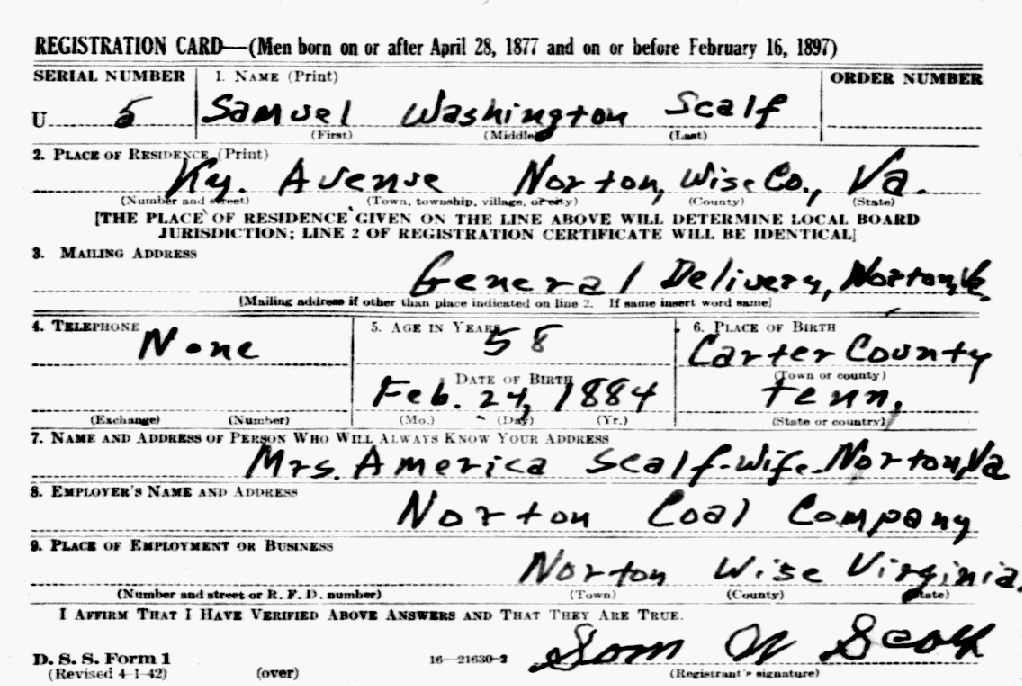 REGISTRATION CARD—(Men born on or after April 28, 1877 and on or before February 16, 1897)
SERIAL NUMBER 1. NAME (Print) ORDER NUMBER
U 5 Samuel Washington Scalf
(First) (Middle) (Last)
2. PLACE OF RESIDENCE (Print)
Ky. Avenue Norton, Wise Co., Va.
(Number and street) (Town, township, village, or city) (County) (State)
[THE PLACE OF RESIDENCE GIVEN ON THE LINE ABOVE WILL DETERMINE LOCAL BOARD
JURISDICTION; LINE 2 OF REGISTRATION CERTIFICATE WILL BE IDENTICAL]
3. MAILING ADDRESS
General Delivery, Norton, Va.
[Mailing address if other than place indicated on line 2. If same insert word same]
4. TELEPHONE 5. AGE IN YEARS 6. PLACE OF BIRTH
None 58 Carter County
DATE OF BIRTH (Town or county)
Feb. 24, 1884 Tenn.
(Exchange) (Number) (Mo.) (Day) (Yr.) (State or country)
7. NAME AND ADDRESS OF PERSON WHO WILL ALWAYS KNOW YOUR ADDRESS
Mrs. America Scalf-Wife-Norton, Va
8. EMPLOYER'S NAME AND ADDRESS
Norton Coal Company
9. PLACE OF EMPLOYMENT OR BUSINESS
Norton Wise Virginia.
(Number and street or R. F. D. number) (Town) (County) (State)
I AFFIRM THAT I HAVE VERIFIED ABOVE ANSWERS AND THAT THEY ARE TRUE.
Sam W Scalf
D. S. S. Form 1 16—21630-2
(Revised 4-1-42) (over) (Registrant's signature)